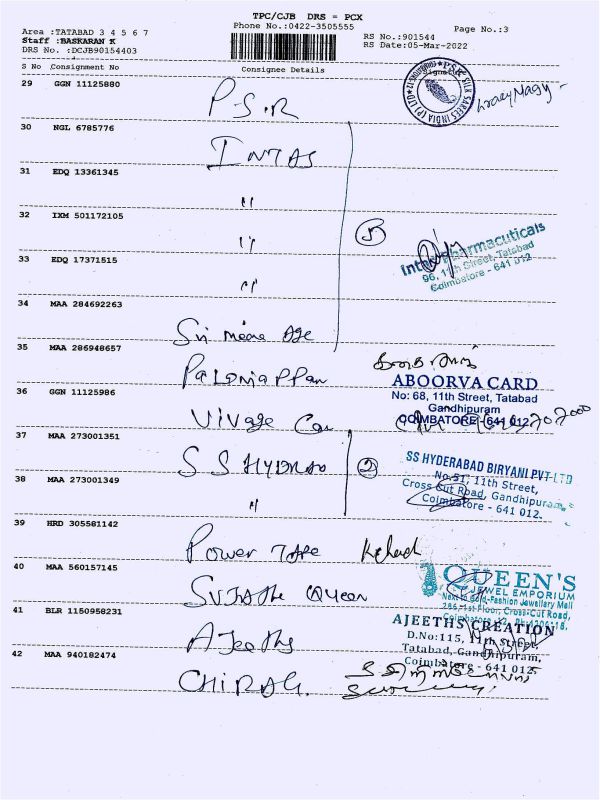 TPC/CJB DRS = PCX
Area :TATABAD 3 4 5 6 7
Phone No.:0422-3505555
Page No.:3
Staff :BASKARAN K
RS No.:901544
DRS No. :DCJB90154403
RS Date:05-Mar-2022
S No Consignment No Consignee Details Signature
29 GGN 11125880 P.S.R
PSR SILK SAREES INDIA (P) LTD
30 NGL 6785776 INTAS
31 EDQ 13361345 "
32 IXM 501172105 "
5
Pharmacuticals
96, 11th Street, Tatabad
Coimbatore - 641 012
33 EDQ 17371515 "
34 MAA 284692263 Sri Age
35 MAA 286948657 Palaniappan
ABOORVA CARD
No: 68, 11th Street, Tatabad
Gandhipuram
COIMBATORE - 641 012
36 GGN 11125986
37 MAA 273001351 S S HYDRAD
2
SS HYDERABAD BIRYANI PVT-LTD
No.51, 11th Street,
Cross Cut Road, Gandhipuram,
Coimbatore - 641 012.
38 MAA 273001349 "
39 HRD 305581142 Power
40 MAA 560157145 Queen
QUEEN'S
JEWEL EMPORIUM
Next to Gold-Fashion Jewellery Mall
286, 1st Floor, Cross-Cut Road,
41 BLR 1150958231 AJeeths
AJEETHS CREATION
D.No:115, 11th Street,
Tatabad, Gandhipuram,
Coimbatore - 641 012.
42 MAA 940182474 CHIRAG.